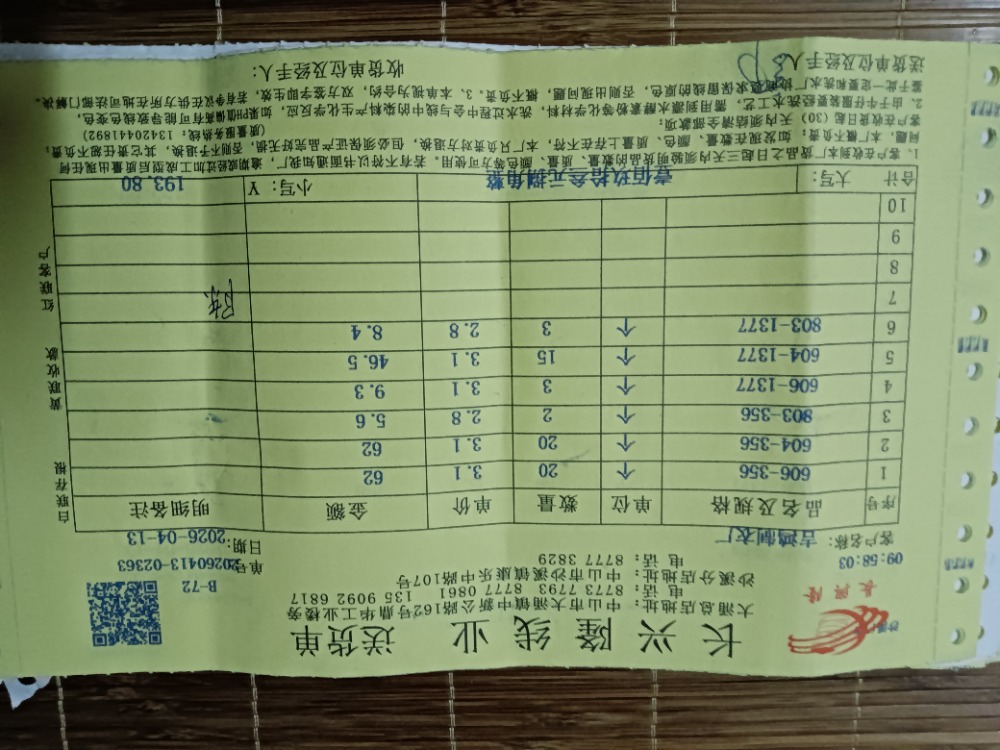 长兴隆线业 送货单
长兴隆
大涌总店地址: 中山市大涌镇中新公路162号鼎华工业楼旁
电话: 8773 7793 8777 0861 135 9092 6817
沙溪分店地址: 中山市沙溪镇康乐中路107号
电话: 8777 3829
B-72
单号: 20260413-02363
09:58:03
客户名称: 吉鸿制衣厂
日期: 2026-04-13
序号 品名及规格 单位 数量 单价 金额 明细备注
1 606-356 个 20 3.1 62
2 604-356 个 20 3.1 62
3 803-356 个 2 2.8 5.6
4 606-1377 个 3 3.1 9.3
5 604-1377 个 15 3.1 46.5
6 803-1377 个 3 2.8 8.4
7
8
9
10
合计 大写: 壹佰玖拾叁元捌角整 小写: ¥ 193.80
白联存根 黄联收款 红联客户
1、客户在收到本厂货品之日起三天内须验明货品的数量、质量、颜色等方可使用,若有不符以书面通知我厂,逾期或经过加工成型后质量出现任何
问题,本厂概不负责;如发现在数量、颜色、质量上存在不符,本厂只负责对方退换,但必须保证产品完好无损,否则不予退换,其它责任恕不负责;
客户在收货日起(30)天内须结清全部款项; (质量服务热线: 13420441892)
2、由于牛仔服装要经洗水工艺,需用到漂水酵素粉等化学材料,洗水过程中会与线中的染料产生化学反应,如果PH值偏高有可能导致线色变色,
鉴于此一定要和洗水厂协商要求保留线的原色,否则出现问题,概不负责。3、本单视为合约,双方签字即生效,若有争议在供方所在地司法部门解决。
送货单位及经手人: 收货单位及经手人: